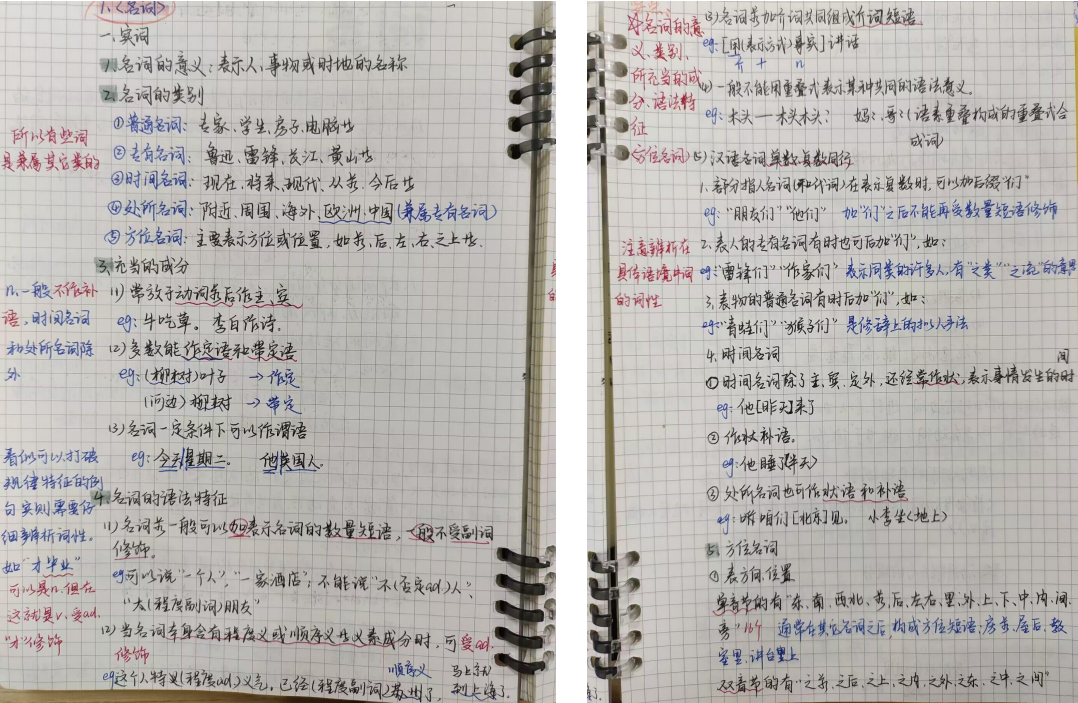 1.《名词》
一.实词
1.名词的意义：表示人、事物或时地的名称
2.名词的类别
①普通名词：专家、学生、房子、电脑等
②专有名词：鲁迅、雷锋、长江、黄山等
③时间名词：现在、将来、现代、从前、今后等
④处所名词：附近、周围、海外、欧洲、中国(兼属专有名词)
⑤方位名词：主要表示方位或位置，如前、后、左、右、之上等.
所以有些词
是兼属其它类的
3.充当的成分
(1)常放于动词前后作主、宾
eg：牛吃草。李白作诗.
(2)多数能作定语和带定语
eg：(柳树)叶子 →作定
(河边)柳树 →带定
(3)名词一定条件下可以作谓语
eg：今天星期二。 他美国人.
n.一般不作补
语，时间名词
和处所名词除
外
4.名词的语法特征
(1)名词前一般可以加表示名词的数量短语，一般不受副词
修饰。
eg可以说"一个人"，"一家酒店"；不能说"不(否定ad)人"、
"太(程度副词)朋友"
(2)当名词本身含有程度义或顺序义性义素成分时，可受ad.
修饰
顺序义
eg这个人特义(程度ad)义气，已经(程度副词)苏州了，到上海了.
看似可以打破
规律特征的例
句实则需要仔
细辨析词性。
如"才毕业"
可以是n.但在
这就是v.受ad.
"才"修饰
名词的意
义、类别、
所充当的成
分、语法特
征
(方位名词)
(3)名词前加介词共同组成介词短语
eg：[用(表示方式)事实]讲话
介 + n
(4)一般不能用重叠式表示某种共同的语法意义。
eg：木头——木头木头： 妈妈、哥哥(语素重叠构成的重叠式合
成词
(5)汉语名词单数复数同行
1.部分指人名词(和代词)在表示复数时，可以加后缀"们"
eg："朋友们""他们" 加"们"之后不能再受数量短语修饰
2.表人的专有名词有时也可后加"们"，如：
eg："雷锋们""作家们" 表示同类的许多人，有"之类""之流"的意思
3.表物的普通名词有时后加"们"，如：
eg："青蛙们""猴子们" 是修辞上的拟人手法
注意辨析在
具体语境中词
的词性
4.时间名词
①时间名词除了主、宾、定外，还经常作状，表示事情发生的时间
eg：他[昨天]来了
②作状补语。
eg：他睡了〈半天〉
③处所名词也可作状语和补语
eg：咱们[北京]见。 〈地上〉
5.方位名词
①表方向、位置
单音节的有"东、南、西北、前、后、左右、里、外、上、下、中、内、间、
旁"16个 通常在其它名词之后构成方位短语：房前、屋后、教
室里、讲台上
双音节的有"之前、之后、之上、之内、之外、之东、之中、之间"